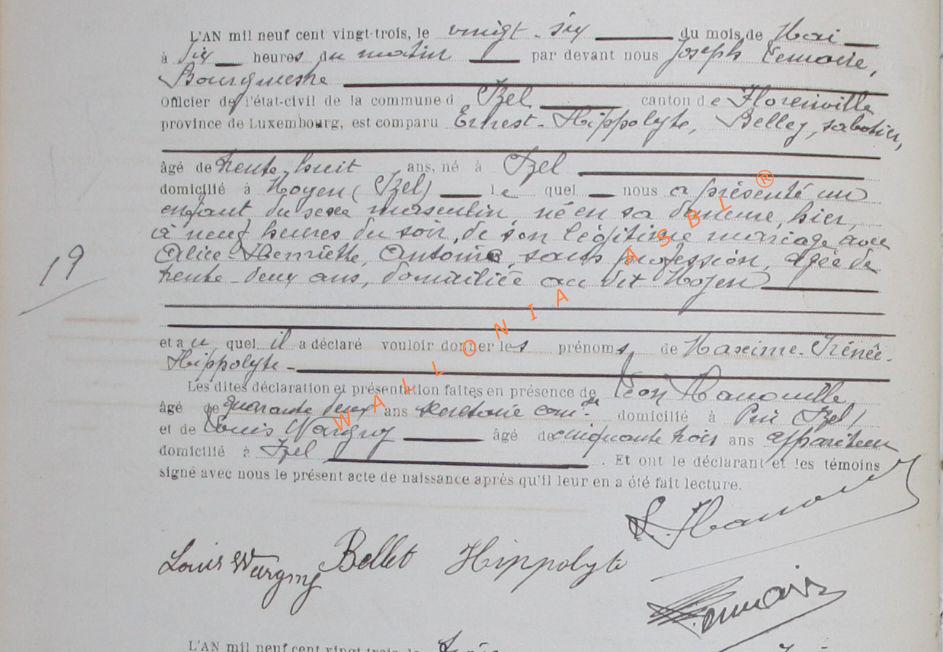 L'AN mil neuf cent vingt-trois, le vingt-six du mois de Mai
à six heures du matin par devant nous Joseph Lemaire,
Bourgmestre
Officier de l'état-civil de la commune d Izel canton de Florenville
province de Luxembourg, est comparu Ernest-Hippolyte, Bellet, sabotier,
âgé de trente huit ans, né à Izel
domicilié à Moyen (Izel) le quel nous a présenté un
enfant du sexe masculin, né en sa demeure, hier,
à neuf heures du soir, de son légitime mariage avec
Alice-Henriette, Antoine, sans profession, agée de
trente-deux ans, domiciliée au dit Moyen
19
et au quel il a déclaré vouloir donner les prénoms de Maxime-Irénée-
Hippolyte-
Les dites déclaration et présentation faites en présence de Léon Hanouille,
âgé de quarante deux ans secrétaire com.al domicilié à Pin (Izel)
et de Louis Wargny âgé de cinquante trois ans appariteur
domicilié à Izel . Et ont le déclarant et les témoins
signé avec nous le présent acte de naissance après qu'il leur en a été fait lecture.
Louis Wargny Bellet Hippolyte
Lemaire
L'AN mil neuf cent vingt-trois, le
WALLONIA ASBL ®